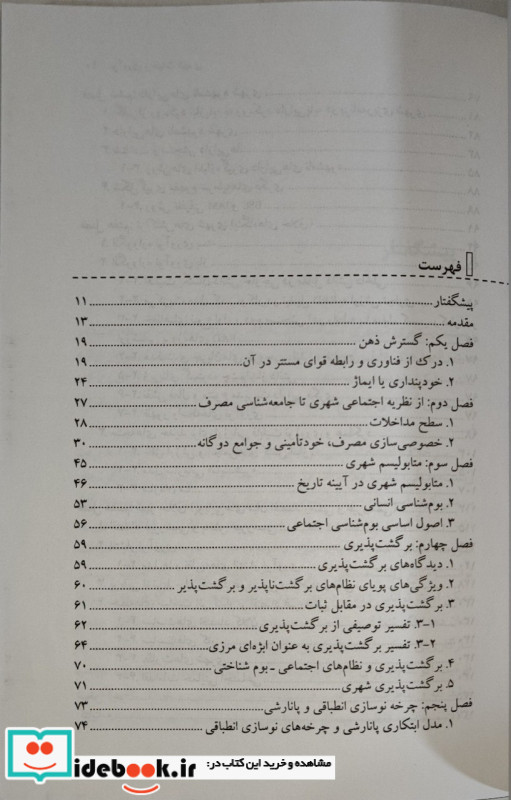 فهرست
پیشگفتار ۱۱
مقدمه ۱۳
فصل یکم: گسترش ذهن ۱۹
۱. درک از فناوری و رابطه قوای مستتر در آن ۱۹
۲. خودپنداری یا ایماژ ۲۴
فصل دوم: از نظریه اجتماعی شهری تا جامعه‌شناسی مصرف ۲۷
۱. سطح مداخلات ۲۸
۲. خصوصی‌سازی مصرف، خودتأمینی و جوامع دوگانه ۳۰
فصل سوم: متابولیسم شهری ۴۵
۱. متابولیسم شهری در آیینه تاریخ ۴۶
۲. بوم‌شناسی انسانی ۵۳
۳. اصول اساسی بوم‌شناسی اجتماعی ۵۶
فصل چهارم: برگشت‌پذیری ۵۹
۱. دیدگاه‌های برگشت‌پذیری ۵۹
۲. ویژگی‌های پویای نظام‌های برگشت‌ناپذیر و برگشت‌پذیر ۶۰
۳. برگشت‌پذیری در مقابل ثبات ۶۱
۳-۱. تفسیر توصیفی از برگشت‌پذیری ۶۲
۳-۲. تفسیر برگشت‌پذیری به عنوان ابژه‌ای مرزی ۶۴
۴. برگشت‌پذیری و نظام‌های اجتماعی ـ بوم شناختی ۷۰
۵. برگشت‌پذیری شهری ۷۱
فصل پنجم: چرخه نوسازی انطباقی و پانارشی ۷۳
۱. مدل ابتکاری پانارشی و چرخه‌های نوسازی انطباقی ۷۴
مشاهده و خرید این کتاب در:
idebook.ir